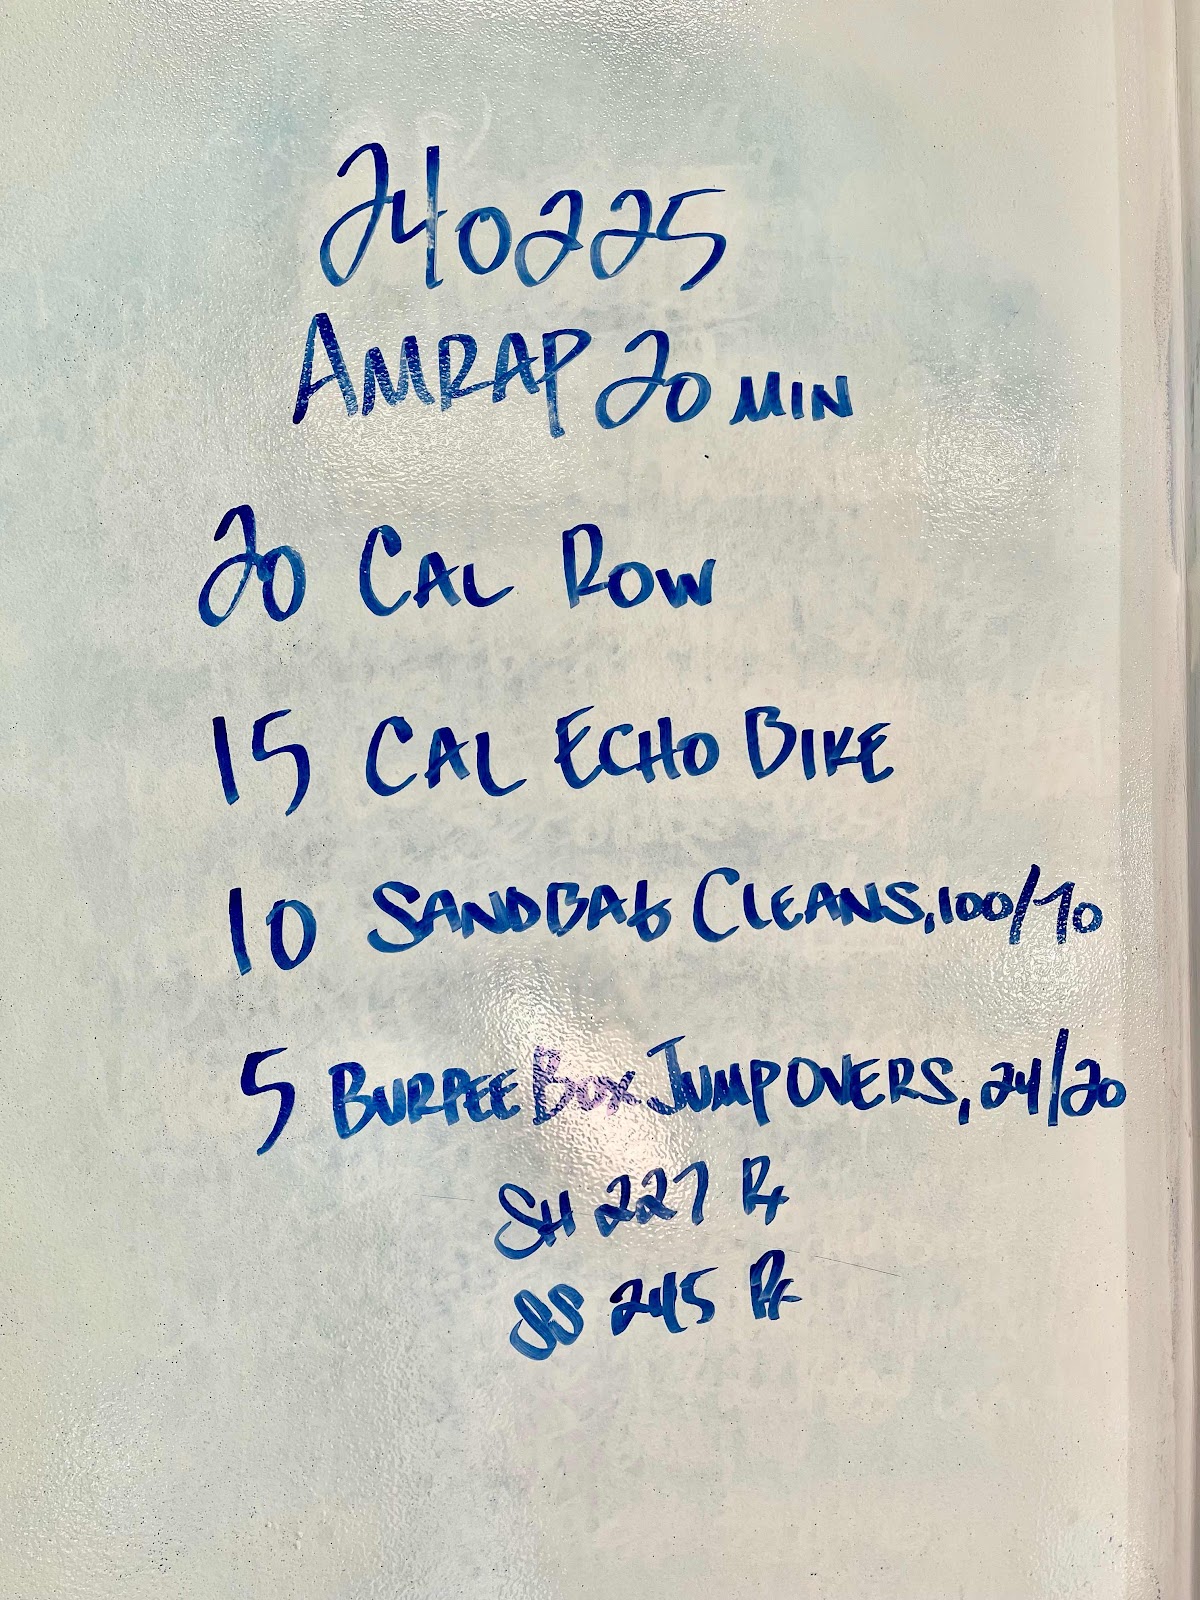 240225
AMRAP 20 MIN
20 CAL ROW
15 CAL ECHO BIKE
10 SANDBAG CLEANS, 100/70
5 BURPEE BOX JUMP OVERS, 24/20
SH 227 Rx
SS 245 Rx